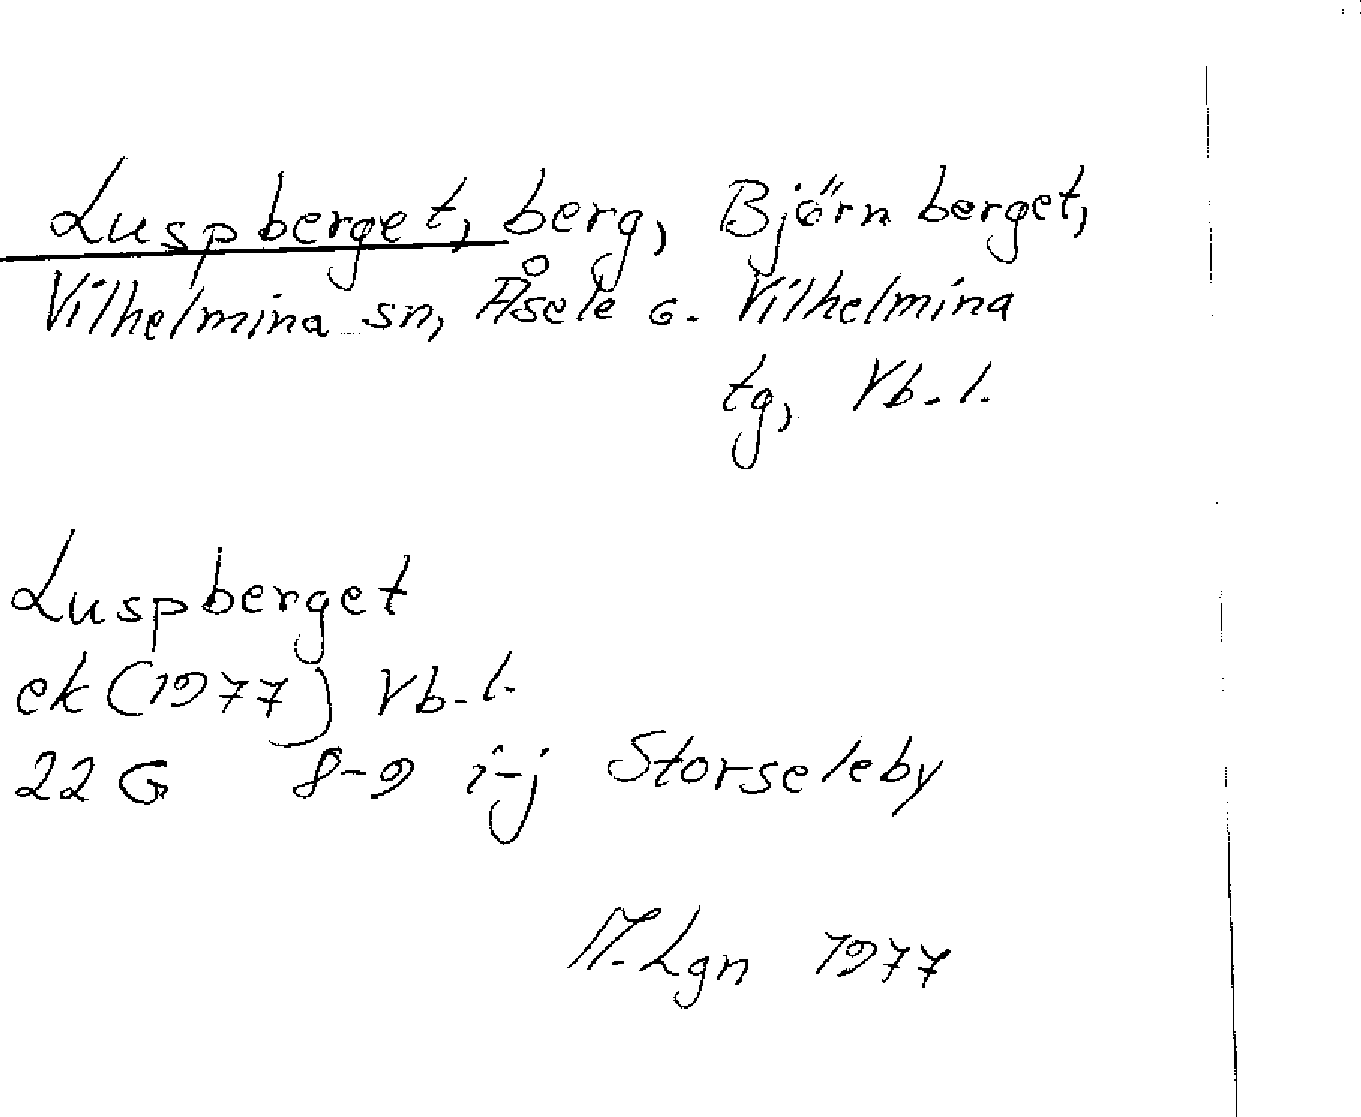 Luspberget, berg, Björnberget,
Vilhelmina sn, Åsele G. Vilhelmina
tg, Vb.l.
Luspberget
ek (1977) Vb.l.
22 G 8-9 i-j Storseleby
M.Lgn 1977